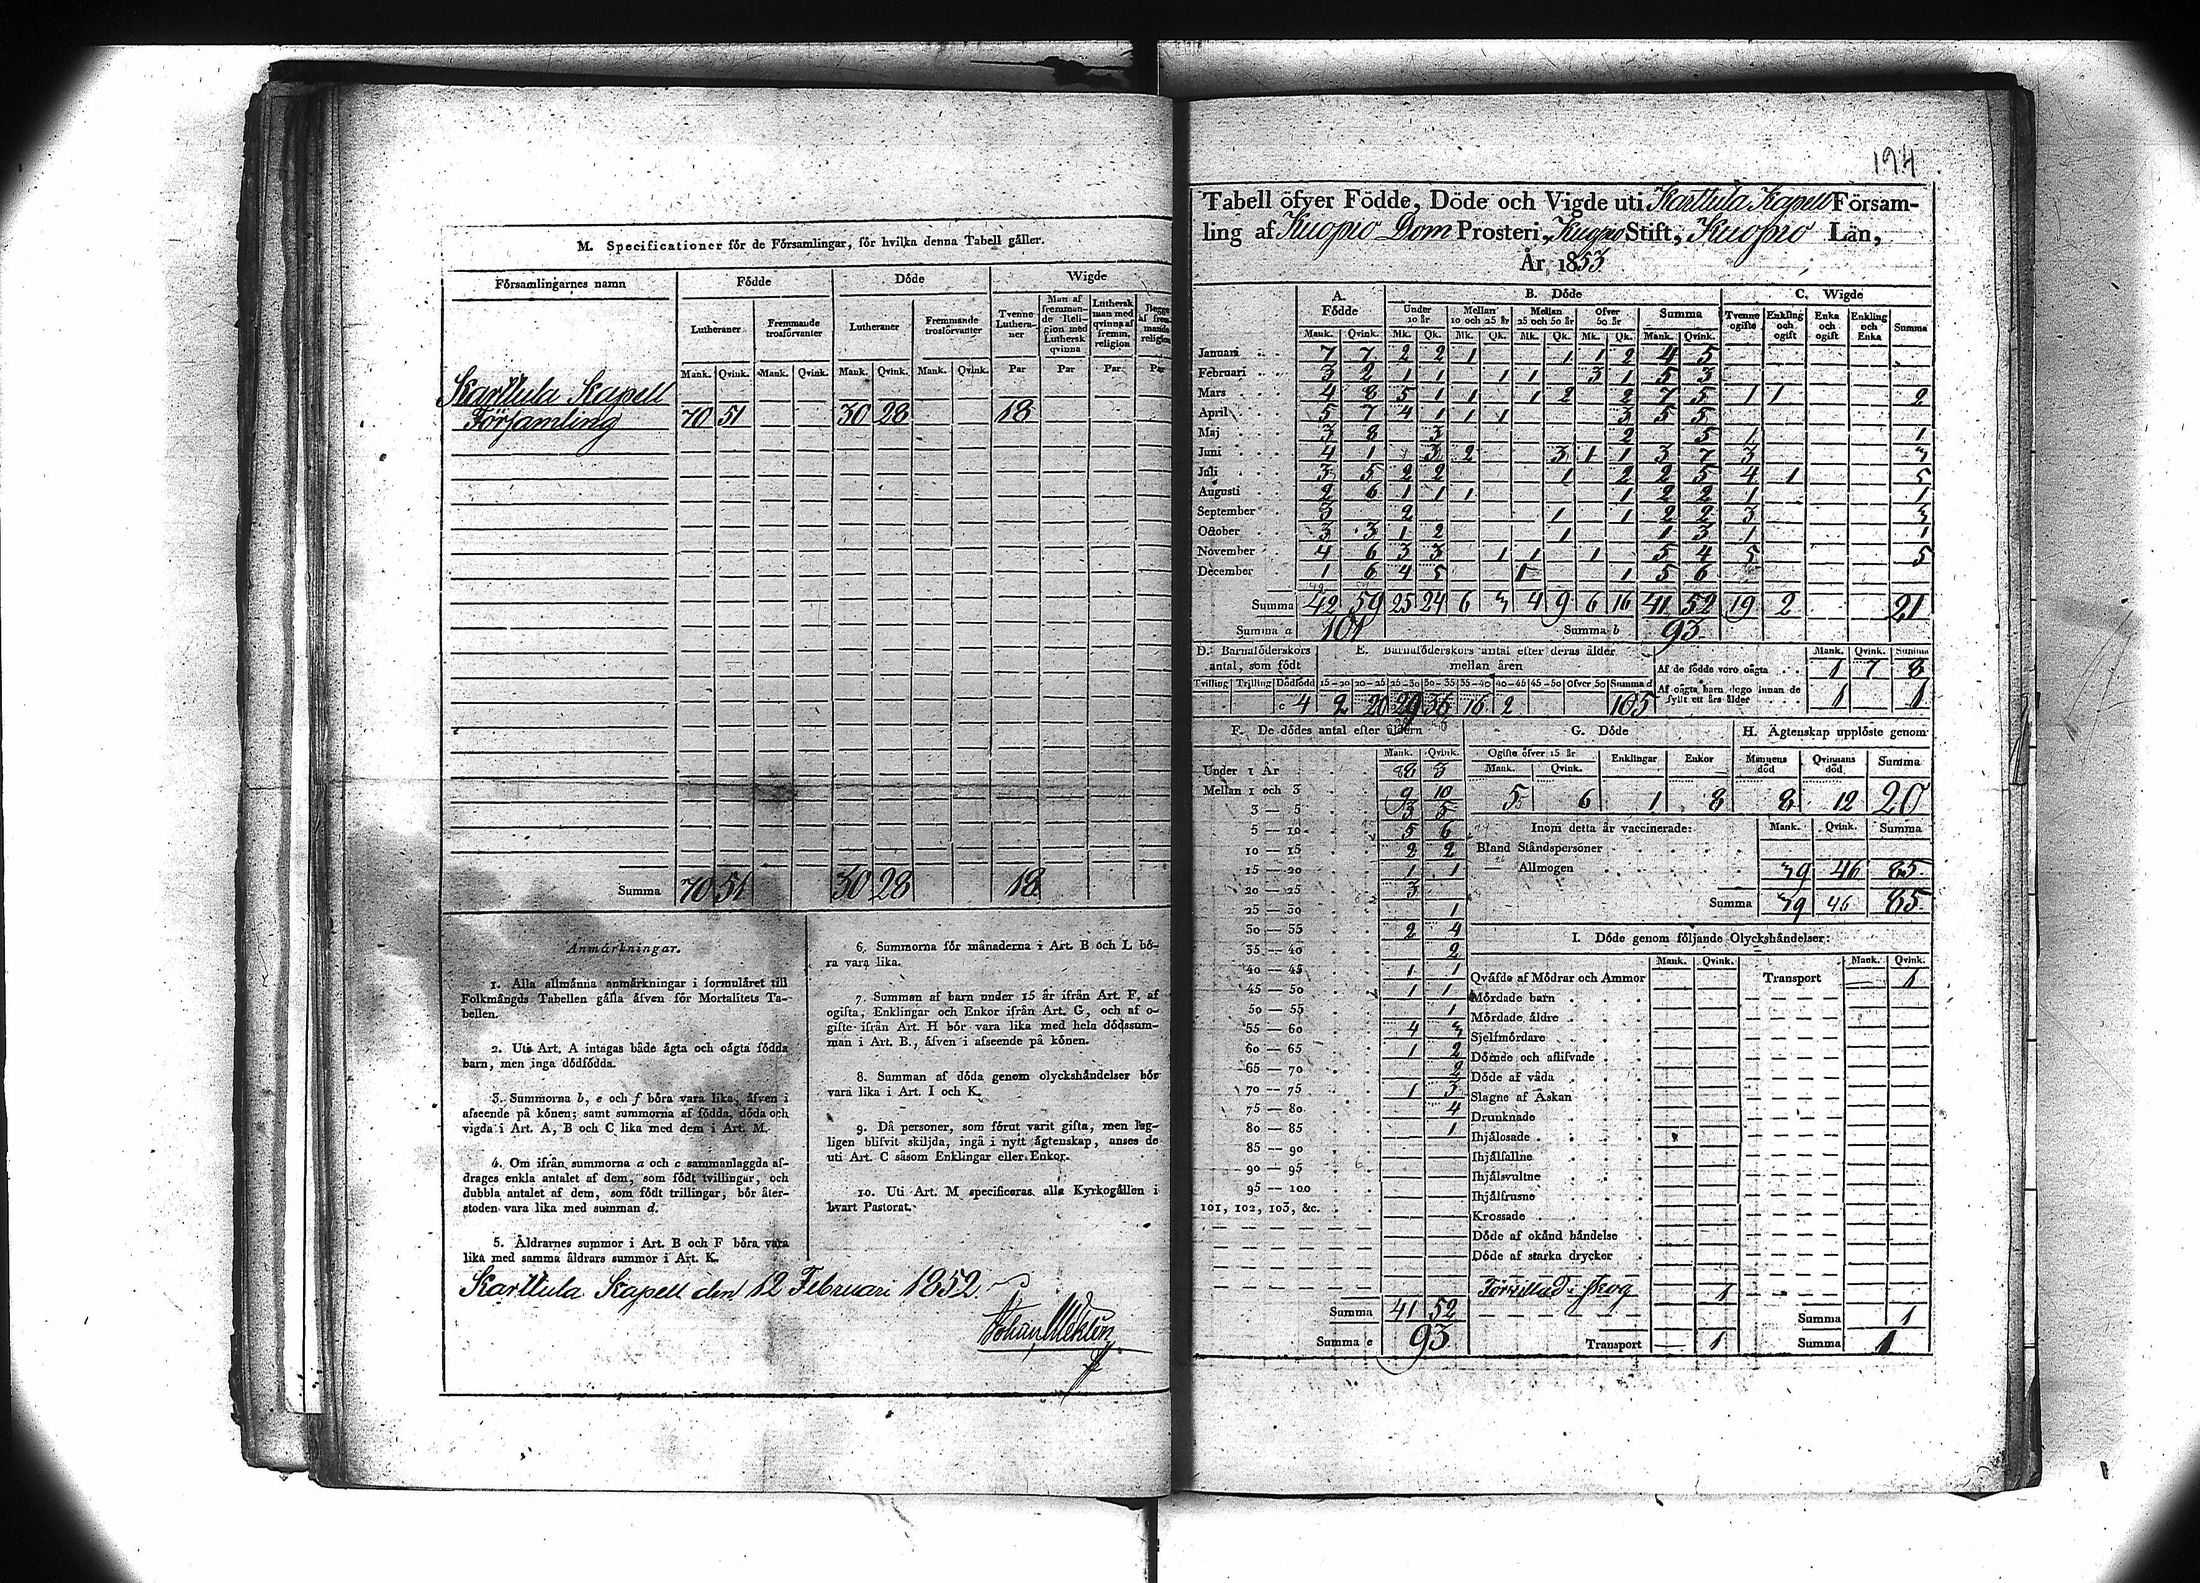 M. Specificationer för de Församlingar, för hvilka denna Tabell gäller.
Församlingarnes namn Födde Döde Wigde
Lutheraner Fremmande trosförvanter Lutheraner Fremmande trosförvanter Tvenne Lutheraner Man af fremmande Religion med Luthersk qvinna Luthersk man med qvinna af fremm. religion
Mank. Qvink. Mank. Qvink. Mank. Qvink. Mank. Qvink. Par Par Par Par
Karttula Kapell
Församling 70 51 30 28 18
Summa 70 51 30 28 18
Anmärkningar.
1. Alla allmänna anmärkningar i formuläret till
Folkmängds Tabellen gälla äfven för Mortalitets Ta-
bellen.
2. Uti Art. A intagas både ägta och oägta födda
barn, men inga dödfödda.
3. Summorna b, e och f böra vara lika, äfven i
afseende på könen; samt summorna af födda, döda och
vigda i Art. A, B och C lika med dem i Art. M.
4. Om ifrån summorna a och c sammanlaggda af-
drages enkla antalet af dem, som födt tvillingar, och
dubbla antalet af dem, som födt trillingar, bör åter-
stoden vara lika med summan d.
5. Åldrarnes summor i Art. B och F böra vara
lika med samma åldrars summor i Art. K.
6. Summorna för månaderna i Art. B och L bö-
ra vara lika.
7. Summan af barn under 15 år ifrån Art. F, af
ogifta, Enklingar och Enkor ifrån Art. G, och af o-
gifte ifrån Art. H bör vara lika med hela dödssum-
man i Art. B., äfven i afseende på könen.
8. Summan af döda genom olyckshändelser bör
vara lika i Art. I och K.
9. Då personer, som förut varit gifta, men lag-
ligen blifvit skiljda, ingå i nytt ägtenskap, anses de
uti Art. C såsom Enklingar eller Enkor.
10. Uti Art. M specificeras alla Kyrkogällen i
hvart Pastorat.
Karttula Kapell den 12 Februari 1852
Johan
194
Tabell öfver Födde, Döde och Vigde uti Karttula Kapell Försam-
ling af Kuopio Dom Prosteri, Kuopio Stift, Kuopio Län,
År 1853
A. Födde B. Döde C. Wigde
Under 10 år Mellan 10 och 25 år Mellan 25 och 50 år Öfver 50 år Summa Tvenne ogifte Enkling och ogift Enka och ogift Enkling och Enka Summa
Mank. Qvink. Mk. Qk. Mk. Qk. Mk. Qk. Mk. Qk. Mank. Qvink.
Januari 7 7 2 2 1 1 1 2 4 5
Februari 3 2 1 1 1 1 3 1 5 3
Mars 4 8 5 1 1 1 2 2 7 5 1 1 2
April 5 7 4 1 1 1 3 5 5
Maj 3 8 3 2 5 1 1
Juni 4 1 3 2 3 1 1 3 7 3 3
Juli 3 5 2 2 1 2 2 5 4 1 5
Augusti 2 6 1 1 1 1 2 2 1 1
September 3 2 1 1 2 2 3 3
October 3 3 1 2 1 1 3 1 1
November 4 6 3 3 1 1 1 5 4 5 5
December 1 6 4 5 1 1 5 6
Summa 42 59 25 24 6 3 4 9 6 16 41 52 19 2 21
Summa a 101 Summa b 93
D. Barnaföderskors antal, som födt
Tvilling Trilling Dödfödd
c 4
E. Barnaföderskors antal efter deras ålder mellan åren
15-20 20-25 25-30 30-35 35-40 40-45 45-50 Öfver 50 Summa d
2 20 29 36 16 2 105
Mank. Qvink. Summa
Af de födde voro oägta 1 7 8
Af oägta barn dego innan de
fyllt ett års ålder 1 1
F. De dödes antal efter åldern
Mank. Qvink.
Under 1 År 8 3
Mellan 1 och 3 9 10
3 — 5 3 5
5 — 10 5 6
10 — 15 2 2
15 — 20 1 1
20 — 25 3
25 — 30 1
30 — 35 2 4
35 — 40 2
40 — 45 1 1
45 — 50 1 1
50 — 55 1
55 — 60 4 3
60 — 65 1 2
65 — 70 2
70 — 75 1 3
75 — 80 4
80 — 85 1
85 — 90
90 — 95
95 — 100
101, 102, 103, &c.
Summa 41 52
Summa e 93
G. Döde
Ogifte öfver 15 år Enklingar Enkor
Mank. Qvink.
5 6 1 8
H. Ägtenskap upplöste genom
Mannens död Qvinnans död Summa
8 12 20
Inom detta år vaccinerade: Mank. Qvink. Summa
Bland Ståndspersoner
— Allmogen 39 46 85
Summa 39 46 85
I. Döde genom följande Olyckshändelser:
Mank. Qvink. Mank. Qvink.
Qväfde af Mödrar och Ammor Transport — 1
Mördade barn
Mördade äldre
Sjelfmördare
Dömde och aflifvade
Döde af våda
Slagne af Åskan
Drunknade
Ihjälosade
Ihjälfallne
Ihjälsvultne
Ihjälfrusne
Krossade
Döde af okänd händelse
Döde af starka drycker
Förvillad i skog 1
Summa 1
Transport — 1 Summa 1